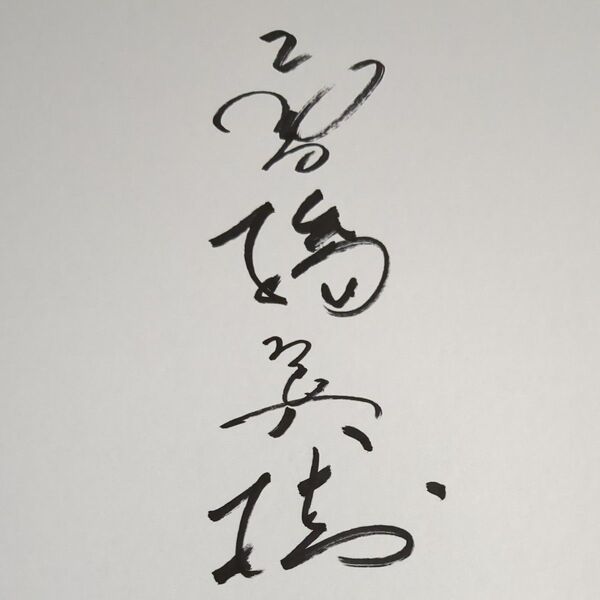 高橋英樹